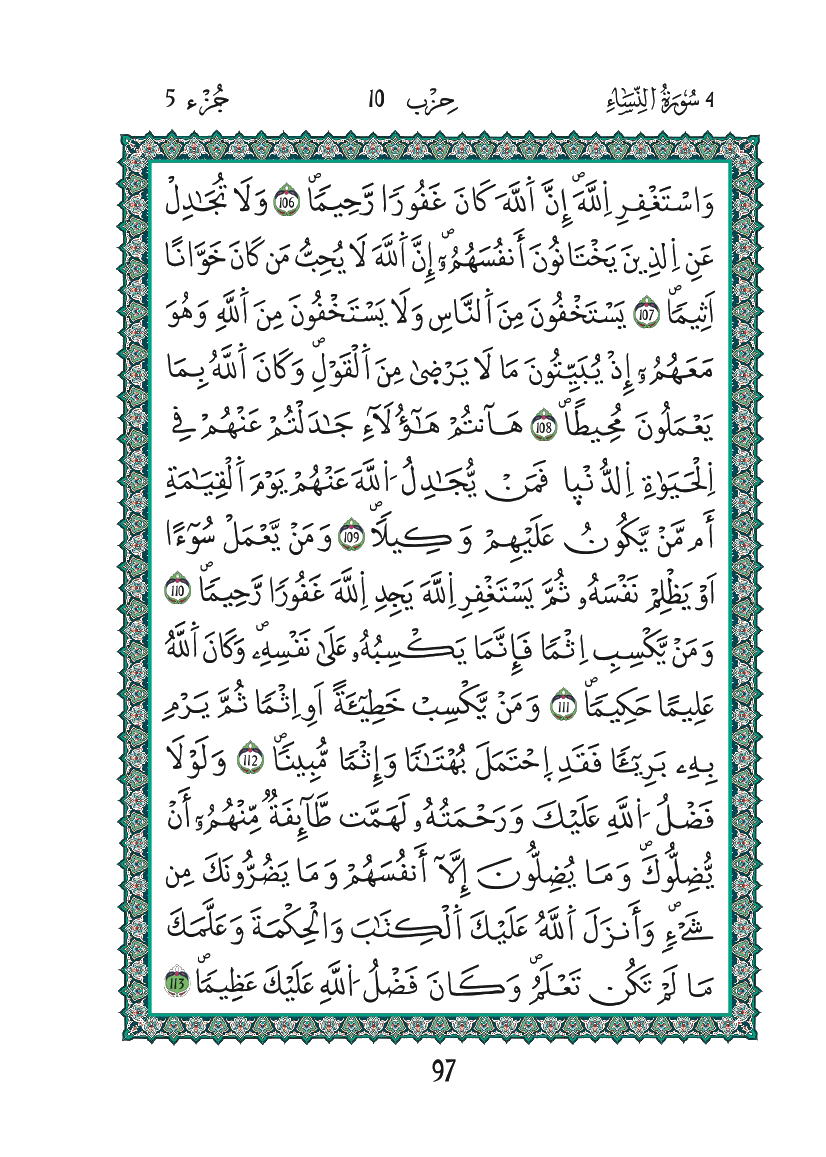 4 سُورَةُ النِّسَاءِ حِزْب 10 جُزْء 5
وَاسْتَغْفِرِ اِللَّهَۖ إِنَّ اَللَّهَ كَانَ غَفُورٗا رَّحِيمٗاۖ 106 وَلَا تُجَٰدِلْ
عَنِ اِلذِينَ يَخْتَانُونَ أَنفُسَهُمُۥٓۖ إِنَّ اَللَّهَ لَا يُحِبُّ مَن كَانَ خَوَّانًا
اَثِيمٗاۖ 107 يَسْتَخْفُونَ مِنَ اَلنَّاسِ وَلَا يَسْتَخْفُونَ مِنَ اَللَّهِ وَهُوَ
مَعَهُمُۥٓ إِذْ يُبَيِّتُونَ مَا لَا يَرْضِىٰ مِنَ اَلْقَوْلِۖ وَكَانَ اَللَّهُ بِمَا
يَعْمَلُونَ مُحِيطًاۖ 108 هَآنتُمْ هَٰٓؤُلَآءِ جَٰدَلْتُمْ عَنْهُمْ فِے
اِلْحَيَوٰةِ اِلدُّنْيٜا فَمَنْ يُّجَٰدِلُ اَللَّهَ عَنْهُمْ يَوْمَ اَلْقِيَٰمَةِ
أَم مَّنْ يَّكُونُ عَلَيْهِمْ وَكِيلٗاۖ 109 وَمَنْ يَّعْمَلْ سُوٓءًا
اَوْ يَظْلِمْ نَفْسَهُۥ ثُمَّ يَسْتَغْفِرِ اِللَّهَ يَجِدِ اِللَّهَ غَفُورٗا رَّحِيمٗاۖ 110
وَمَنْ يَّكْسِبِ اِثْمٗا فَإِنَّمَا يَكْسِبُهُۥ عَلَىٰ نَفْسِهِۦۖ وَكَانَ اَللَّهُ
عَلِيمًا حَكِيمٗاۖ 111 وَمَنْ يَّكْسِبْ خَطِيٓـَٔةً اَوِ اِثْمٗا ثُمَّ يَرْمِ
بِهِۦ بَرِيٓـٔٗا فَقَدِ اِحْتَمَلَ بُهْتَٰنٗا وَإِثْمٗا مُّبِينٗاۖ 112 وَلَوْلَا
فَضْلُ اُللَّهِ عَلَيْكَ وَرَحْمَتُهُۥ لَهَمَّت طَّآئِفَةٞ مِّنْهُمُۥٓ أَنْ
يُّضِلُّوكَۖ وَمَا يُضِلُّونَ إِلَّآ أَنفُسَهُمْ وَمَا يَضُرُّونَكَ مِن
شَےْءٖۖ وَأَنزَلَ اَللَّهُ عَلَيْكَ اَلْكِتَٰبَ وَالْحِكْمَةَ وَعَلَّمَكَ
مَا لَمْ تَكُن تَعْلَمُۖ وَكَانَ فَضْلُ اُللَّهِ عَلَيْكَ عَظِيمٗاۖ 113
97